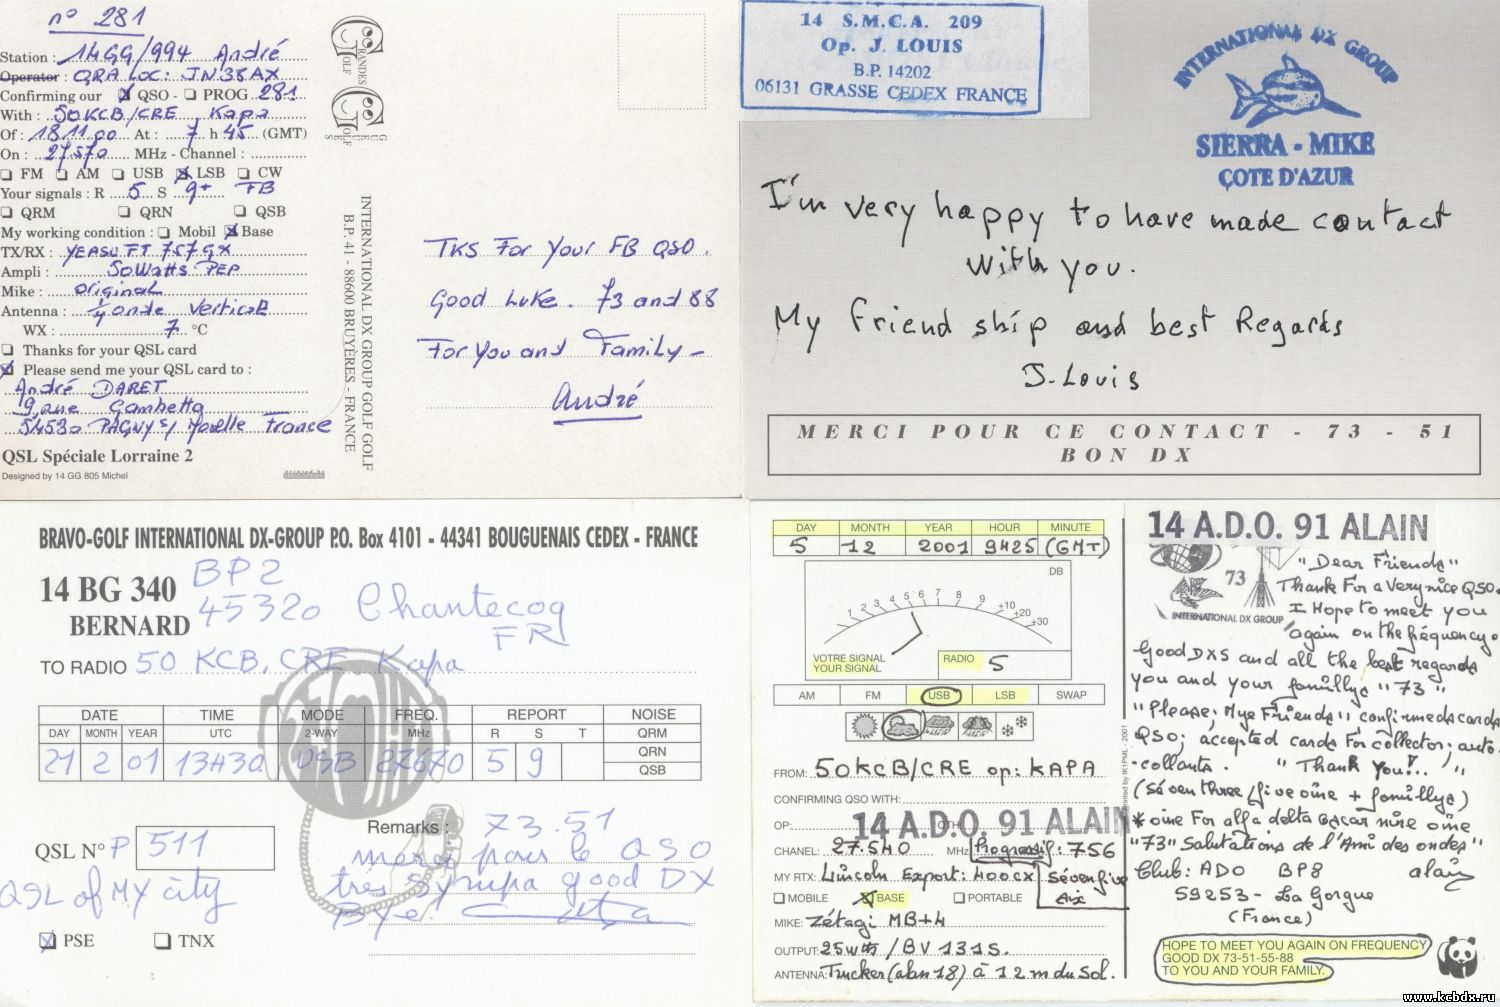 n° 281
Station : 14GG/994 André
Operator : QRA LOC: JN38AX
Confirming our QSO - PROG 281
With : 50KCB/CRE Kapa
Of : 18.11.00 At : 7 h 45 (GMT)
On : 27.570 MHz - Channel :
FM AM USB LSB CW
Your signals : R 5 S 9+ FB
QRM QRN QSB
My working condition : Mobil Base
TX/RX : YEASU FT 757GX
Ampli : 50 Watts PEP
Mike : original
Antenna : 1/4 onde Verticale
WX : 7 °C
Thanks for your QSL card
Please send me your QSL card to :
André DARET
9, rue Gambetta
54530 PAGNY s/ Moselle France
QSL Spéciale Lorraine 2
Designed by 14 GG 805 Michel
GRANDES
GOLF
GOLF
INTERNATIONAL DX GROUP GOLF GOLF
B.P. 41 - 88600 BRUYÈRES - FRANCE
TKS For Your FB QSO.
Good Luke. 73 and 88
For You and Family -
André
14 S.M.C.A. 209
Op. J. LOUIS
B.P. 14202
06131 GRASSE CEDEX FRANCE
INTERNATIONAL DX GROUP
SIERRA - MIKE
COTE D'AZUR
I'm very happy to have made contact
with you.
My Friend ship and best Regards
J. Louis
MERCI POUR CE CONTACT - 73 - 51
BON DX
BRAVO-GOLF INTERNATIONAL DX-GROUP P.O. Box 4101 - 44341 BOUGUENAIS CEDEX - FRANCE
14 BG 340 BP2
BERNARD 45320 Chantecoq
FR
TO RADIO 50 KCB. CRE Kapa
DATE TIME MODE FREQ. REPORT NOISE
DAY MONTH YEAR UTC 2-WAY MHz R S T QRM
21 2 01 13H30 USB 27670 5 9 QRN
QSB
QSL N° P 511
QSL of MY city
PSE TNX
Remarks : 73.51
merci pour le QSO
très sympa good DX
Bye
DAY MONTH YEAR HOUR MINUTE
5 12 2001 9H25 (GMT)
DB
1 2 3 4 5 6 7 8 9 +10 +20 +30
VOTRE SIGNAL
YOUR SIGNAL
RADIO 5
AM FM USB LSB SWAP
FROM: 50KCB/CRE op: KAPA
CONFIRMING QSO WITH:
OP: QTH:
14 A.D.O. 91 ALAIN
CHANEL: 27.540 MHz Progressif: 756
MY RTX: Lincoln Export: 400cx Séven five six
MOBILE BASE PORTABLE
MIKE: Zétagi MB+4
OUTPUT: 25wtts / BV 131S.
ANTENNA: Trucker (alan 18) à 12 m du Sol.
14 A.D.O. 91 ALAIN
73
INTERNATIONAL DX GROUP
"Dear Friends"
Thank For a Very nice QSO.
I Hope to meet you
again on the fréquency.
Good DXS and all the best regards
you and your famillye "73"
"Please; Mye Friends" confirmeds cards
QSO; accepted cards For collector; auto-
collants. "Thank You!.. "
(Séven three / five oine + famillye)
* oine For alfa delta oscar nine oine
"73" Salutations de l'Ami des ondes"
Club: ADO BP8 alain
59253 - La Gorgue
(France)
printed by IK1PML - 2001
HOPE TO MEET YOU AGAIN ON FREQUENCY
GOOD DX 73-51-55-88
TO YOU AND YOUR FAMILY.
www.kcbdx.ru